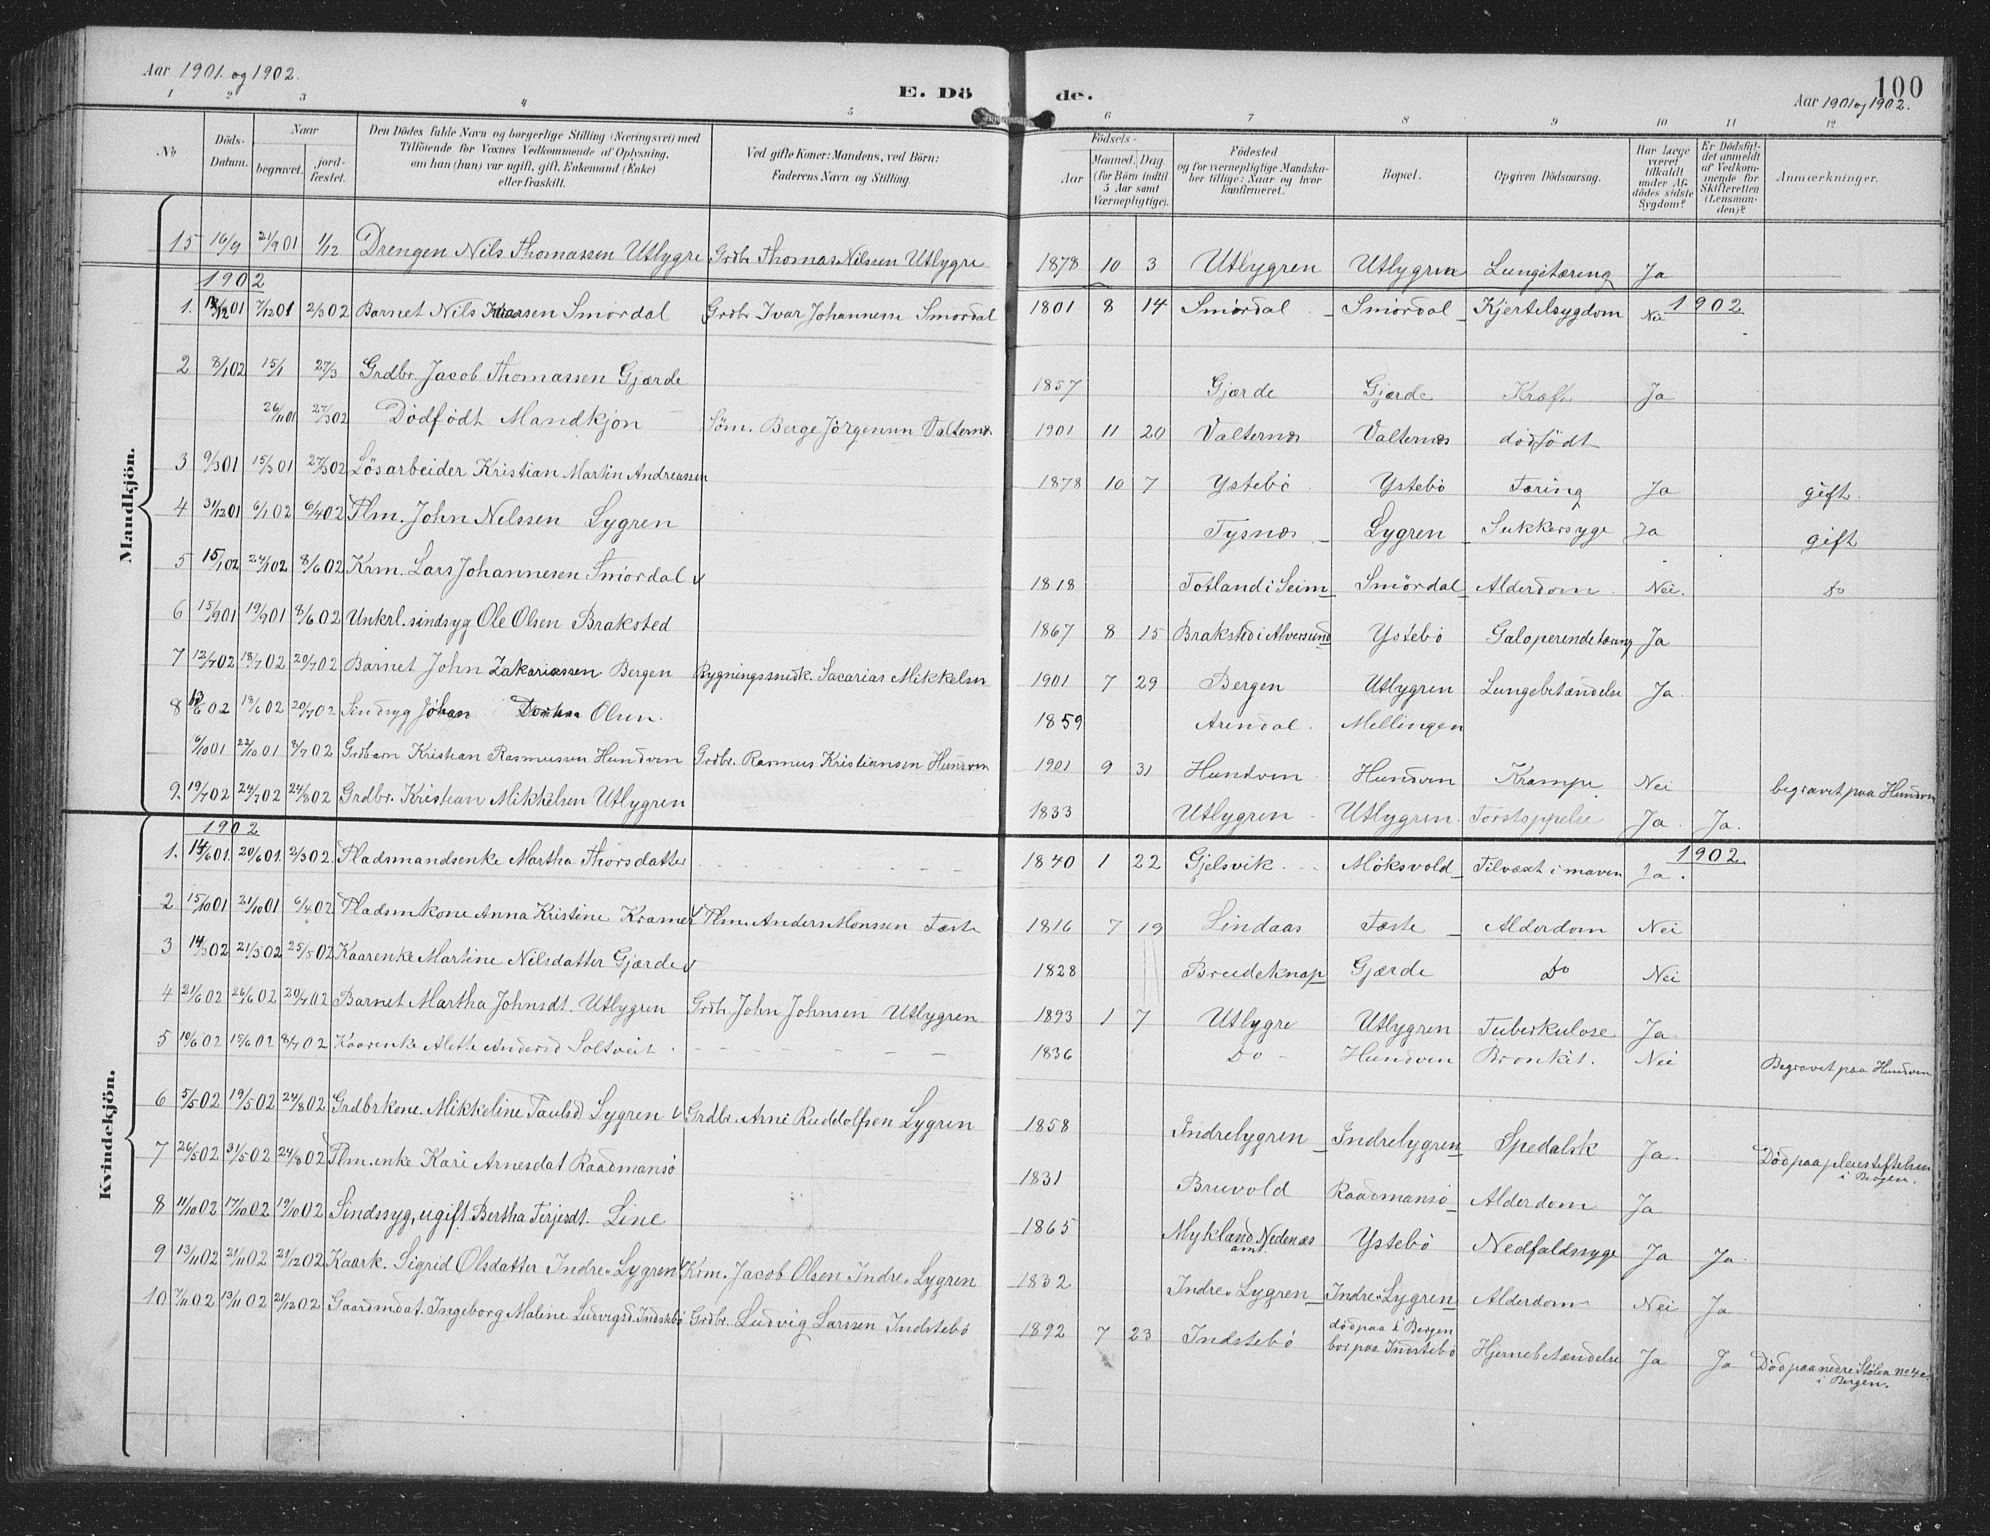 Aar 1901 og 1902.
E. Dö
de.
100
Aar 1901 og 1902.
1 2 3 4 5 6 7 8 9 10 11 12
No
Döds-Datum.
Naar
begravet.
jord-fæstet.
Den Dödes fulde Navn og borgerlige Stilling (Næringsvei) med
Tilföiende for Voxnes Vedkommende af Oplysning,
om han (hun) var ugift, gift, Enkemand (Enke)
eller fraskilt.
Ved gifte Koner: Mandens, ved Börn:
Faderens Navn og Stilling.
Födsels-
Aar
Maaned. Dag
(for Börn indtil
5 Aar samt
Værnepligtige).
Födested
og for værnepligtige Mandska-
ber tillige: Naar og hvor
konfirmeret.
Bopæl.
Opgiven Dödsaarsag.
Har Læge
været
tilkaldt
under Af-
dödes sidste
Sygdom?
Er Dödsfal-
det anmeldt
af Vedkom-
mende for
Skifteretten
(Lensman-
den)?
Anmærkninger.
Mandkjön.
15 16/9 21/901 1/12 Drengen Nils Thomassen Utlygre Grdbr Thomas Nilsen Utlygre 1878 10 3 Utlygren Utlygren Lungetæring Ja
1902
1902
1. 7/1201 2/302 Barnet Nils Smördal Grdbr Ivar Johannesen Smördal 1801 8 14 Smördal Smördal Kjertelsygdom Nei
2 8/102 15/1 27/3 Grdbr. Jacob Thomassen Gjærde 1857 Gjærde Gjærde Kræft Ja
26/1101 27/302 Dödfödt Mandkjön Söm. Berge Jörgensen Valternes 1901 11 20 Valternes Valternes dödfödt
3 9/301 15/301 27/302 Lösarbeider Kristian Martin Andreassen 1878 10 7 Ystebö Ystebö Tæring Ja gift.
4 31/1201 6/102 6/402 Plm. John Nilssen Lygren Tysnæs Lygren Sukkersyge Ja gift
5 15/102 24/102 8/602 Krm. Lars Johannesen Smördal 1818 Totland i Seim Smördal Alderdom Nei. Do
6 15/901 19/901 8/602 Unkrl. sindsyg Ole Olsen Braksted 1867 8 15 Braksted i Alversund Ystebö Galoperende tæring Ja
7 12/702 18/702 20/702 Barnet John Zakariassen Bergen Bygningssnedk. Sacarias Mikkelsen 1901 7 29 Bergen Utlygren Lungebetændelse Ja
8 18/602 20/702 Sindsyg Johan Olsen. 1859 Arendal. Mellingen
6/1001 22/1001 8/702 Grdbarn Kristian Rasmussen Hundven Grdbr. Rasmus Kristiansen Hundven 1901 9 31 Hundven Hundven Krampe Nei begravet paa Hundven
9. 19/702 24/702 24/802 Grdbr. Kristian Mikkelsen Utlygren 1833 Utlygren Utlygren. Forstoppelse Ja. Ja.
Kvindekjön.
1902
1902
1. 14/601 20/601 2/302 Pladsmandsenke Martha Thorsdatter 1840 1 22 Gjelsvik Möksvold Tilvæxt i maven Ja.
2 15/1001 21/1001 6/402 Pladsmkone Anna Kristine Kramer Plm. Anders Monssen Fæste 1816 7 19 Lindaas Fæste Alderdom Nei
3 14/302 21/302 25/502 Kaarenke Martine Nilsdatter Gjærde 1828 Breideknap Gjærde Do Nei
4 21/602 26/602 20/702 Barnet Martha Johnsdt. Utlygren Grdbr John Johnsen Utlygren 1893 1 7 Utlygre Utlygren Tuberkulose Ja
5 10/602 15/602 8/702 Kaarenke Alette Andersd Soltveit 1836 Do Hundven Bronkit. Nei Begravet paa Hundven
6 5/502 19/502 24/802 Grdbrkone. Mikkeline Paulsd Lygren Grdbr. Arne Ruddolfsen Lygren 1858 Indrelygren Indrelygren Spedalsk Ja. Död paa pleiestiftelsen
i Bergen.
7 26/502 31/502 24/802 Plm.enke Kari Arnesdat Raadmansö 1831 Bruvold Raadmansö Alderdom Ja
8 11/1002 17/1002 19/1002 Sindssyg, ugift. Bertha Terjesdt. Line 1865 Mykland Nedenæs
amt. Ystebö Nedfaldssyge Ja Ja.
9 13/1102 21/1102 21/1202 Kaark. Sigrid Olsdatter Indre Lygren Krm. Jacob Olsen Indre Lygren 1832 Indre Lygren Indre Lygren Alderdom Nei Ja
10 7/1102 13/1102 21/1202 Gaardmdat. Ingeborg Maline Ludvigsd Indstebö Grdbr. Ludvig Larssen Indstebö 1892 7 23 Indstebö död paa i Bergen
bor paa Indstebö Hjernebetændelse Ja Ja Död paa nedre Stölen No 4c
i Bergen.